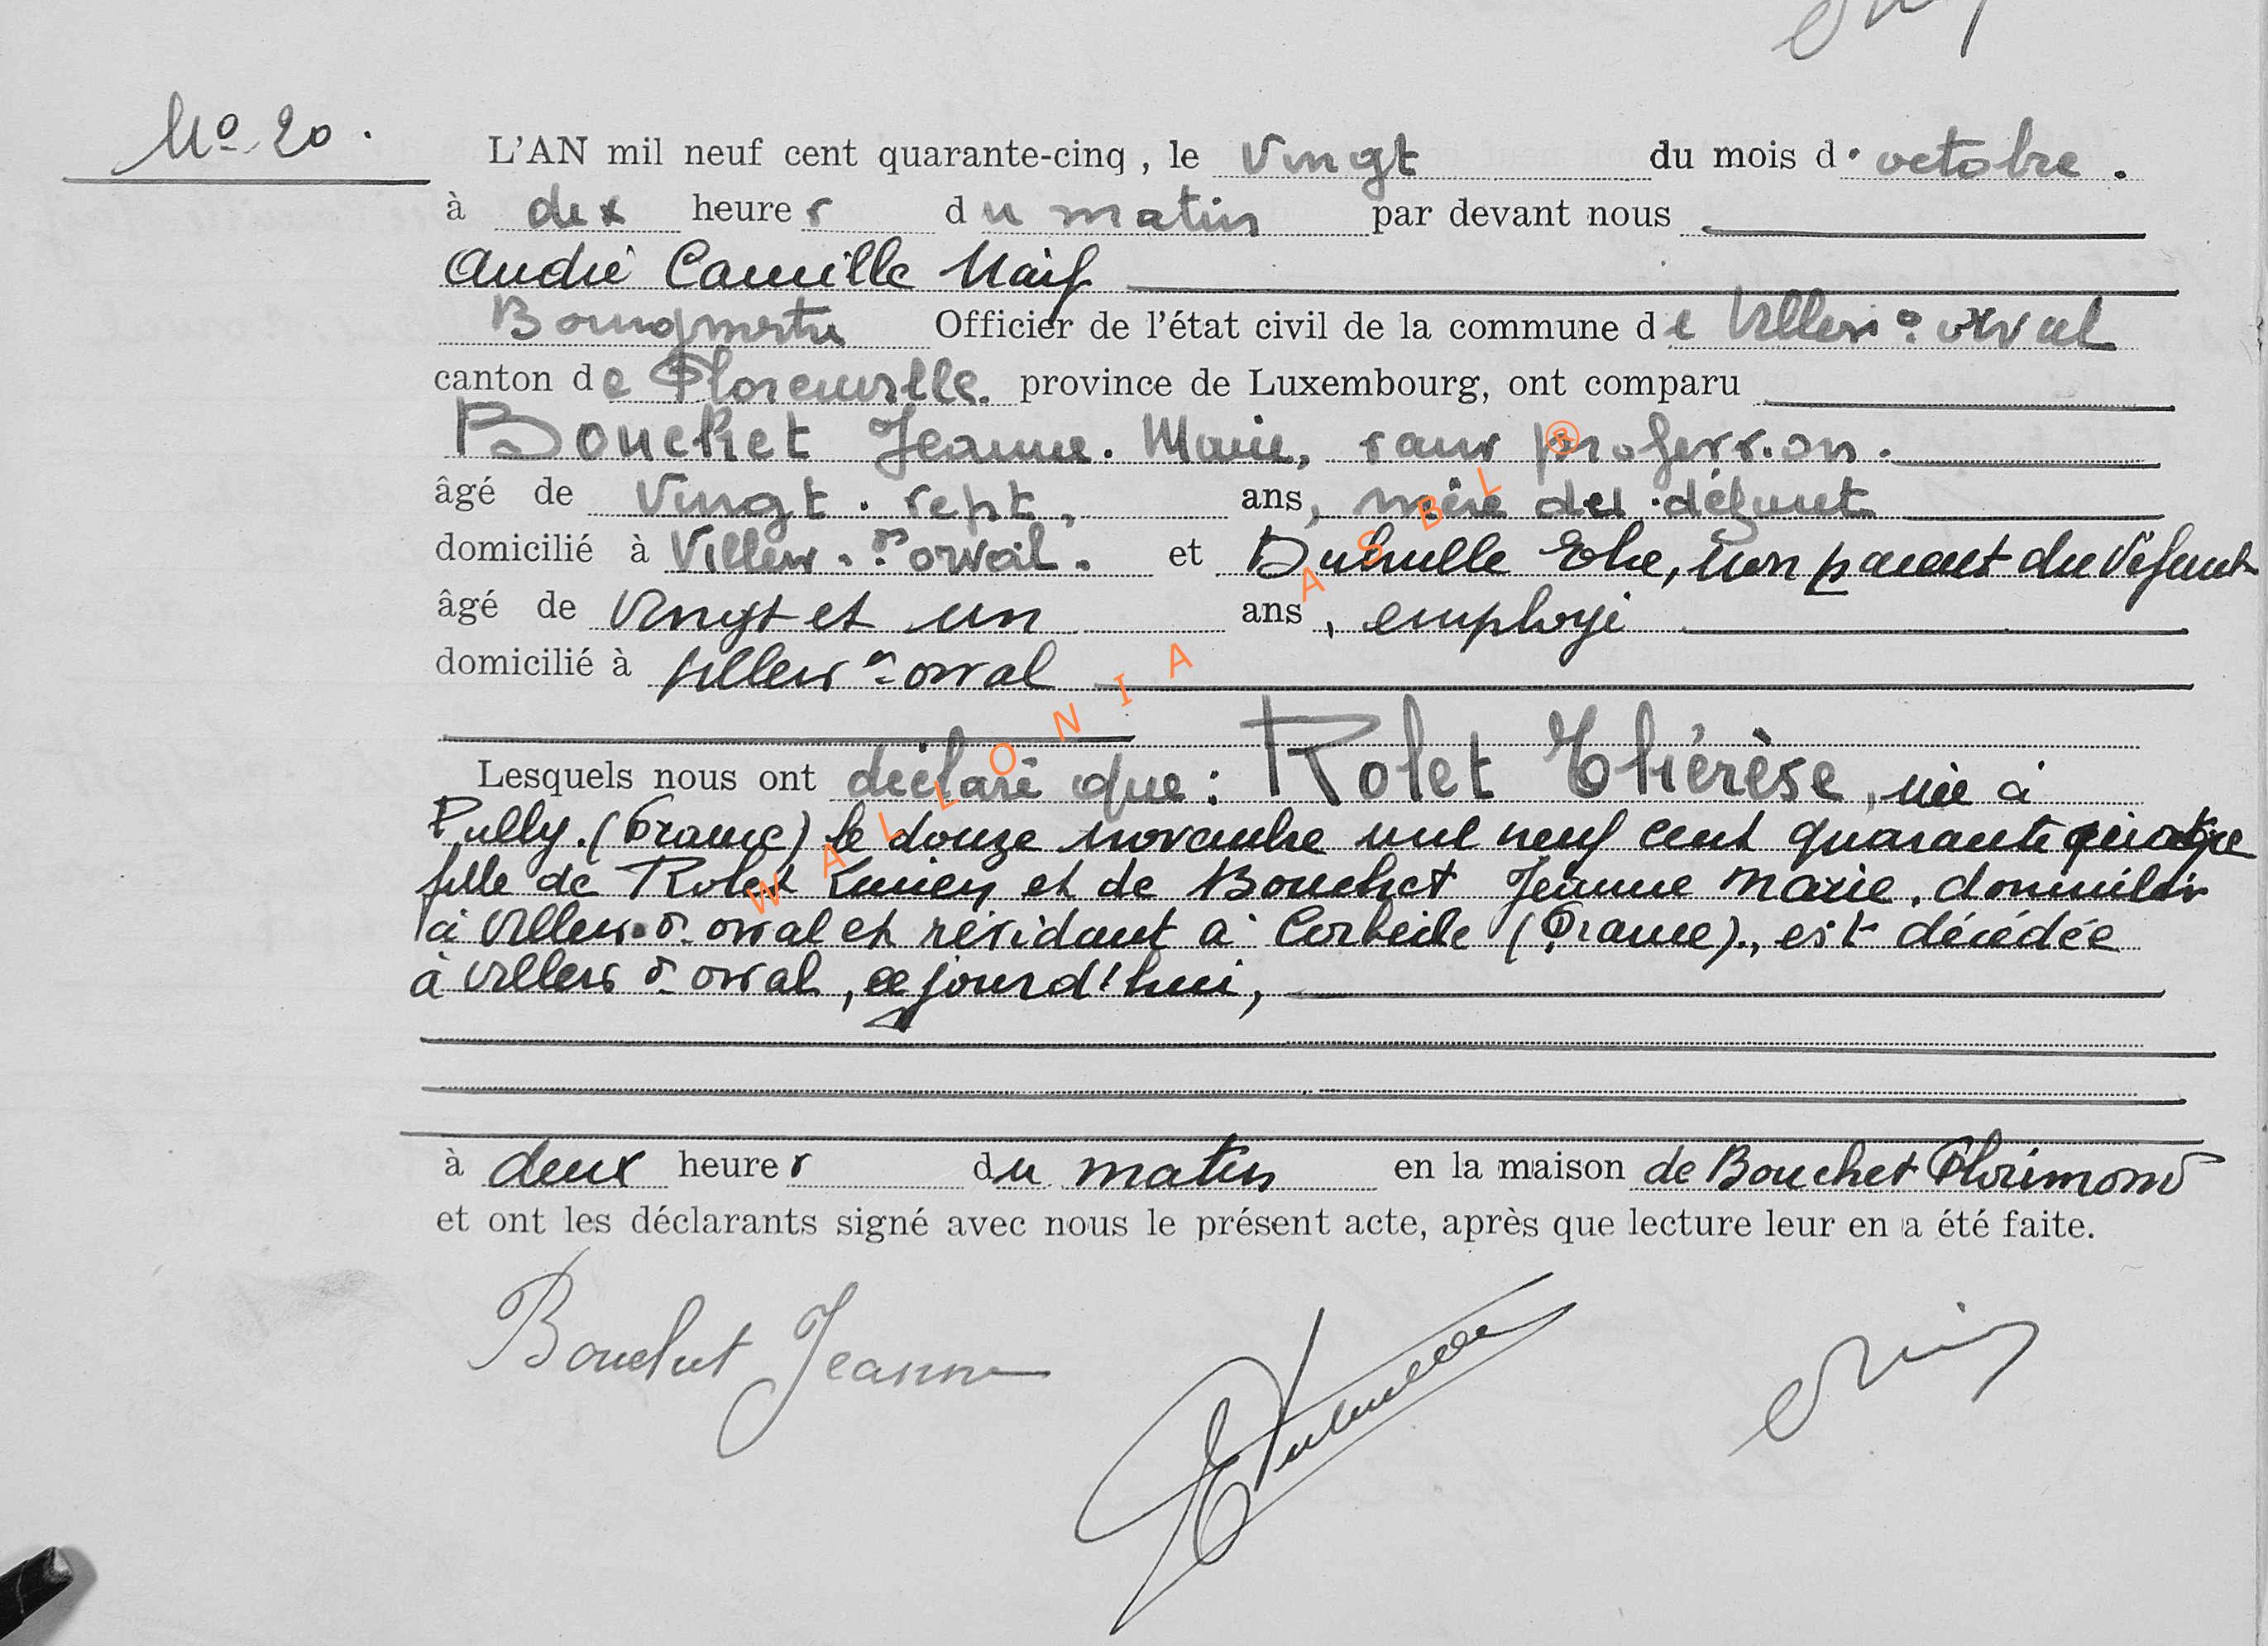 No 20.
L'AN mil neuf cent quarante-cinq, le vingt du mois d'octobre.
à dix heures du matin par devant nous
André Camille Naif
Bourgmestre Officier de l'état civil de la commune de Villers-dt-orval
canton de Florenville. province de Luxembourg, ont comparu
Bouchet Jeanne. Marie, sans profession.
âgé de vingt-sept, ans, mère du défunt
domicilié à Villers-dt orval. et Dubrulle, non parent du défunt
âgé de vingt et un ans, employé
domicilié à Villers dt orval
Lesquels nous ont déclaré que: Rolet Thérèse, née à
(France) le douze novembre mil neuf cent quarante quatre
fille de Rolet Lucien et de Bouchet Jeanne Marie, domiciliés
à Villers dt orval et résidant à Corbeile (France)., est décédée
à Villers dt orval, ce jourd'hui,
à deux heures du matin en la maison de Bouchet Florimond
et ont les déclarants signé avec nous le présent acte, après que lecture leur en a été faite.
Bouchet Jeanne
WALLONIA ASBL ®